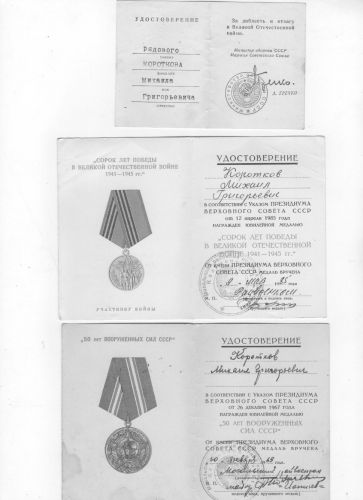 УДОСТОВЕРЕНИЕ
Рядового
КОРОТКОВА
Михаила
Григорьевича
За доблесть и отвагу
в Великой Отечественной
войне.
Министр обороны СССР
Маршал Советского Союза
А. ГРЕЧКО
„СОРОК ЛЕТ ПОБЕДЫ
В ВЕЛИКОЙ ОТЕЧЕСТВЕННОЙ ВОЙНЕ
1941—1945 гг.“
УЧАСТНИКУ ВОЙНЫ
УДОСТОВЕРЕНИЕ
Коротков
Михаил
Григорьевич
В СООТВЕТСТВИИ С УКАЗОМ ПРЕЗИДИУМА
ВЕРХОВНОГО СОВЕТА СССР
от 12 апреля 1985 года
НАГРАЖДЕН ЮБИЛЕЙНОЙ МЕДАЛЬЮ
„СОРОК ЛЕТ ПОБЕДЫ
В ВЕЛИКОЙ ОТЕЧЕСТВЕННОЙ
ВОЙНЕ 1941—1945 гг.“
ОТ ИМЕНИ ПРЕЗИДИУМА ВЕРХОВНОГО
СОВЕТА СССР МЕДАЛЬ ВРУЧЕНА
М. П.
„50 ЛЕТ ВООРУЖЕННЫХ СИЛ СССР“
УДОСТОВЕРЕНИЕ
Коротков
Михаил Григорьевич
В СООТВЕТСТВИИ С УКАЗОМ ПРЕЗИДИУМА
ВЕРХОВНОГО СОВЕТА СССР
ОТ 26 ДЕКАБРЯ 1967 ГОДА
НАГРАЖДЕН ЮБИЛЕЙНОЙ МЕДАЛЬЮ
„50 ЛЕТ ВООРУЖЕННЫХ
СИЛ СССР“
ОТ ИМЕНИ ПРЕЗИДИУМА ВЕРХОВНОГО
СОВЕТА СССР МЕДАЛЬ ВРУЧЕНА
М. П.